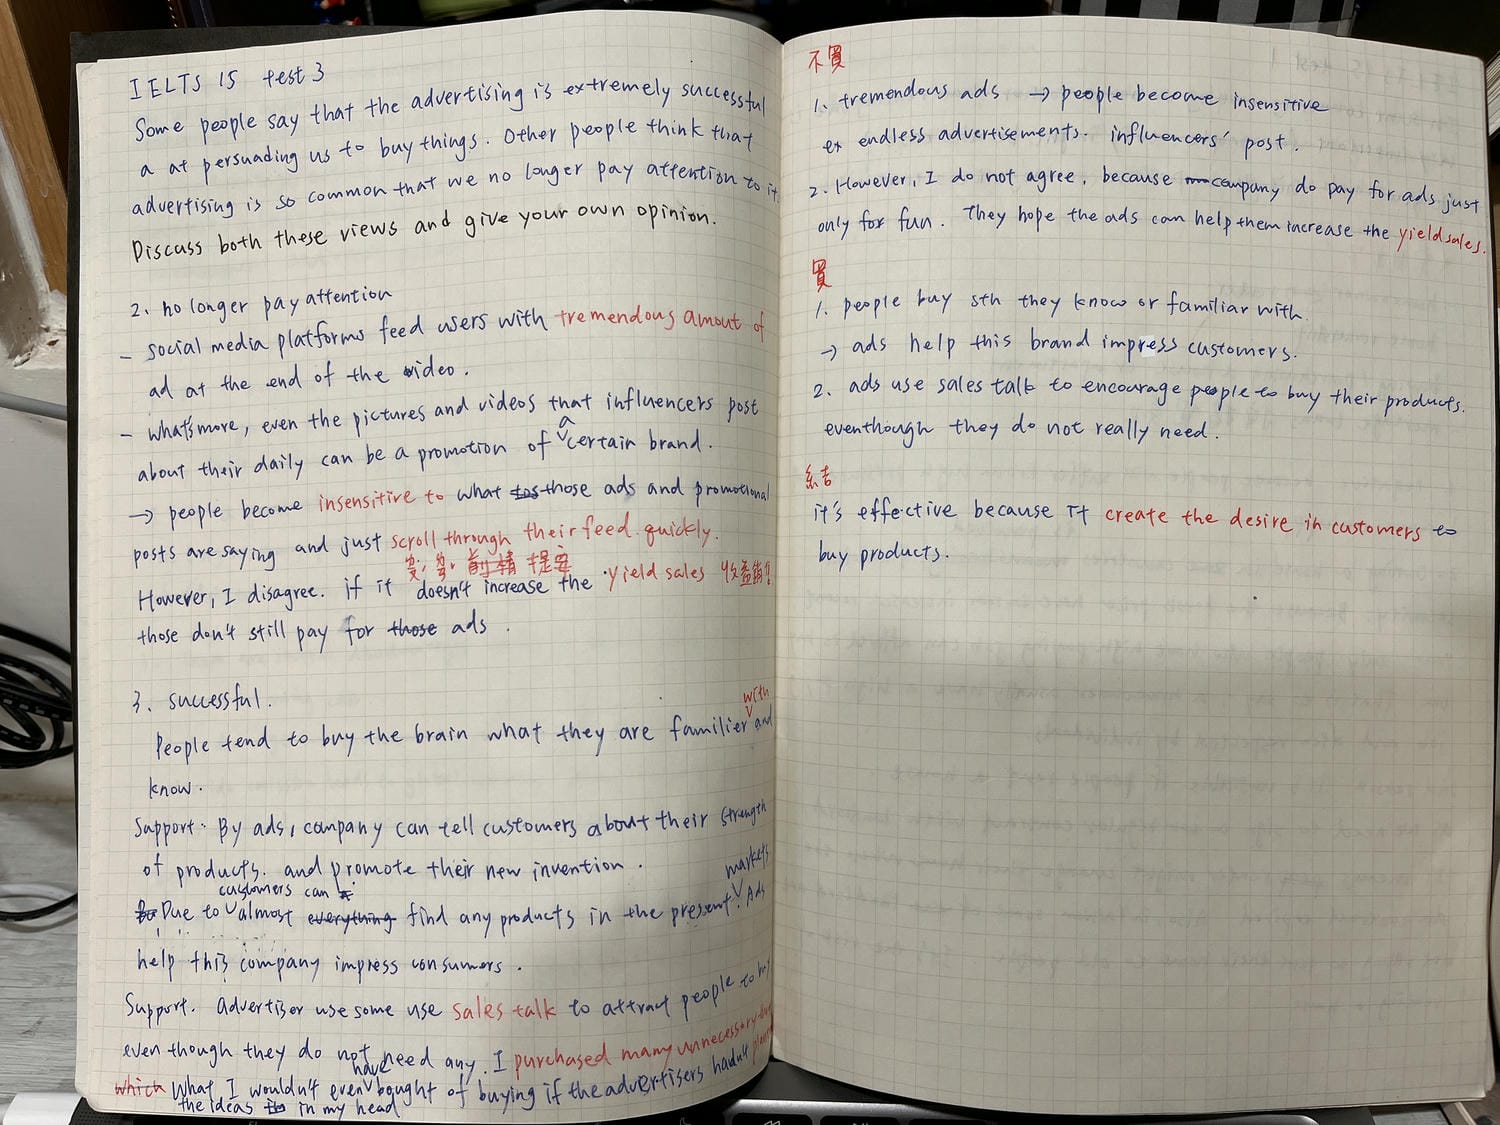 IELTS 15 test 3
Some people say that the advertising is extremely successful
a at persuading us to buy things. Other people think that
advertising is so common that we no longer pay attention to it.
Discuss both these views and give your own opinion.
2. no longer pay attention
- social media platforms feed users with tremendous amout of
ad at the end of the video.
- what's more, even the pictures and videos that influencers post
about their daily can be a promotion of a certain brand.
→ people become insensitive to what those ads and promotional
posts are saying and just scroll through their feed quickly.
However, I disagree. if it doesn't increase the yield sales
those don't still pay for those ads.
3. successful.
People tend to buy the brain what they are familier with and
know.
Support: By ads, company can tell customers about their strength
of products. and promote their new invention.
Due to customers can almost everything find any products in the present markets. Ads
help this company impress consumers.
Support. advertiser use some use sales talk to attract people to buy
even though they do not need any. I purchased many unnecessary
which what I wouldn't even have bought of buying if the advertisers hadn't
the ideas in my head
不買
1. tremendous ads → people become insensitive
ex endless advertisements. influencers' post.
2. However, I do not agree, because company do pay for ads just
only for fun. They hope the ads can help them increase the yield sales.
買
1. people buy sth they know or familiar with.
→ ads help this brand impress customers.
2. ads use sales talk to encourage people to buy their products.
eventhough they do not really need.
結
it's effective because it create the desire in customers to
buy products.